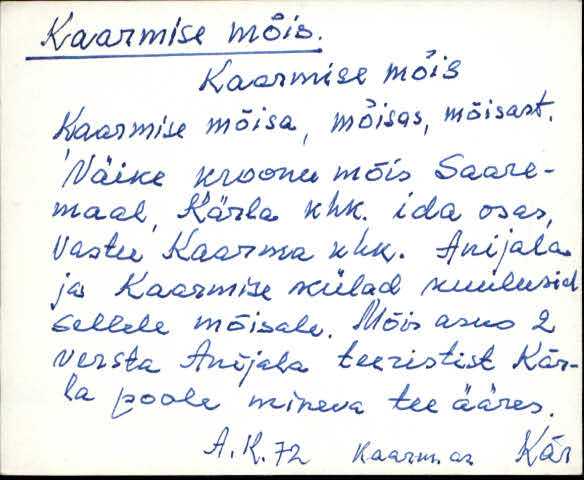 Kaarmise mõis.
Kaarmise mõis
Kaarmise mõisa, mõisas, mõisast.
Väike kroonu mõis Saare-
maal, Kärla khk. ida osas,
vastu Kaarma khk. Anijala
ja Kaarmise külad kuulusid
sellele mõisale. Mõis asus 2
versta Anijala teeristist Kär-
la poole mineva tee ääres.
A.K.72 Kaarm.as Kär